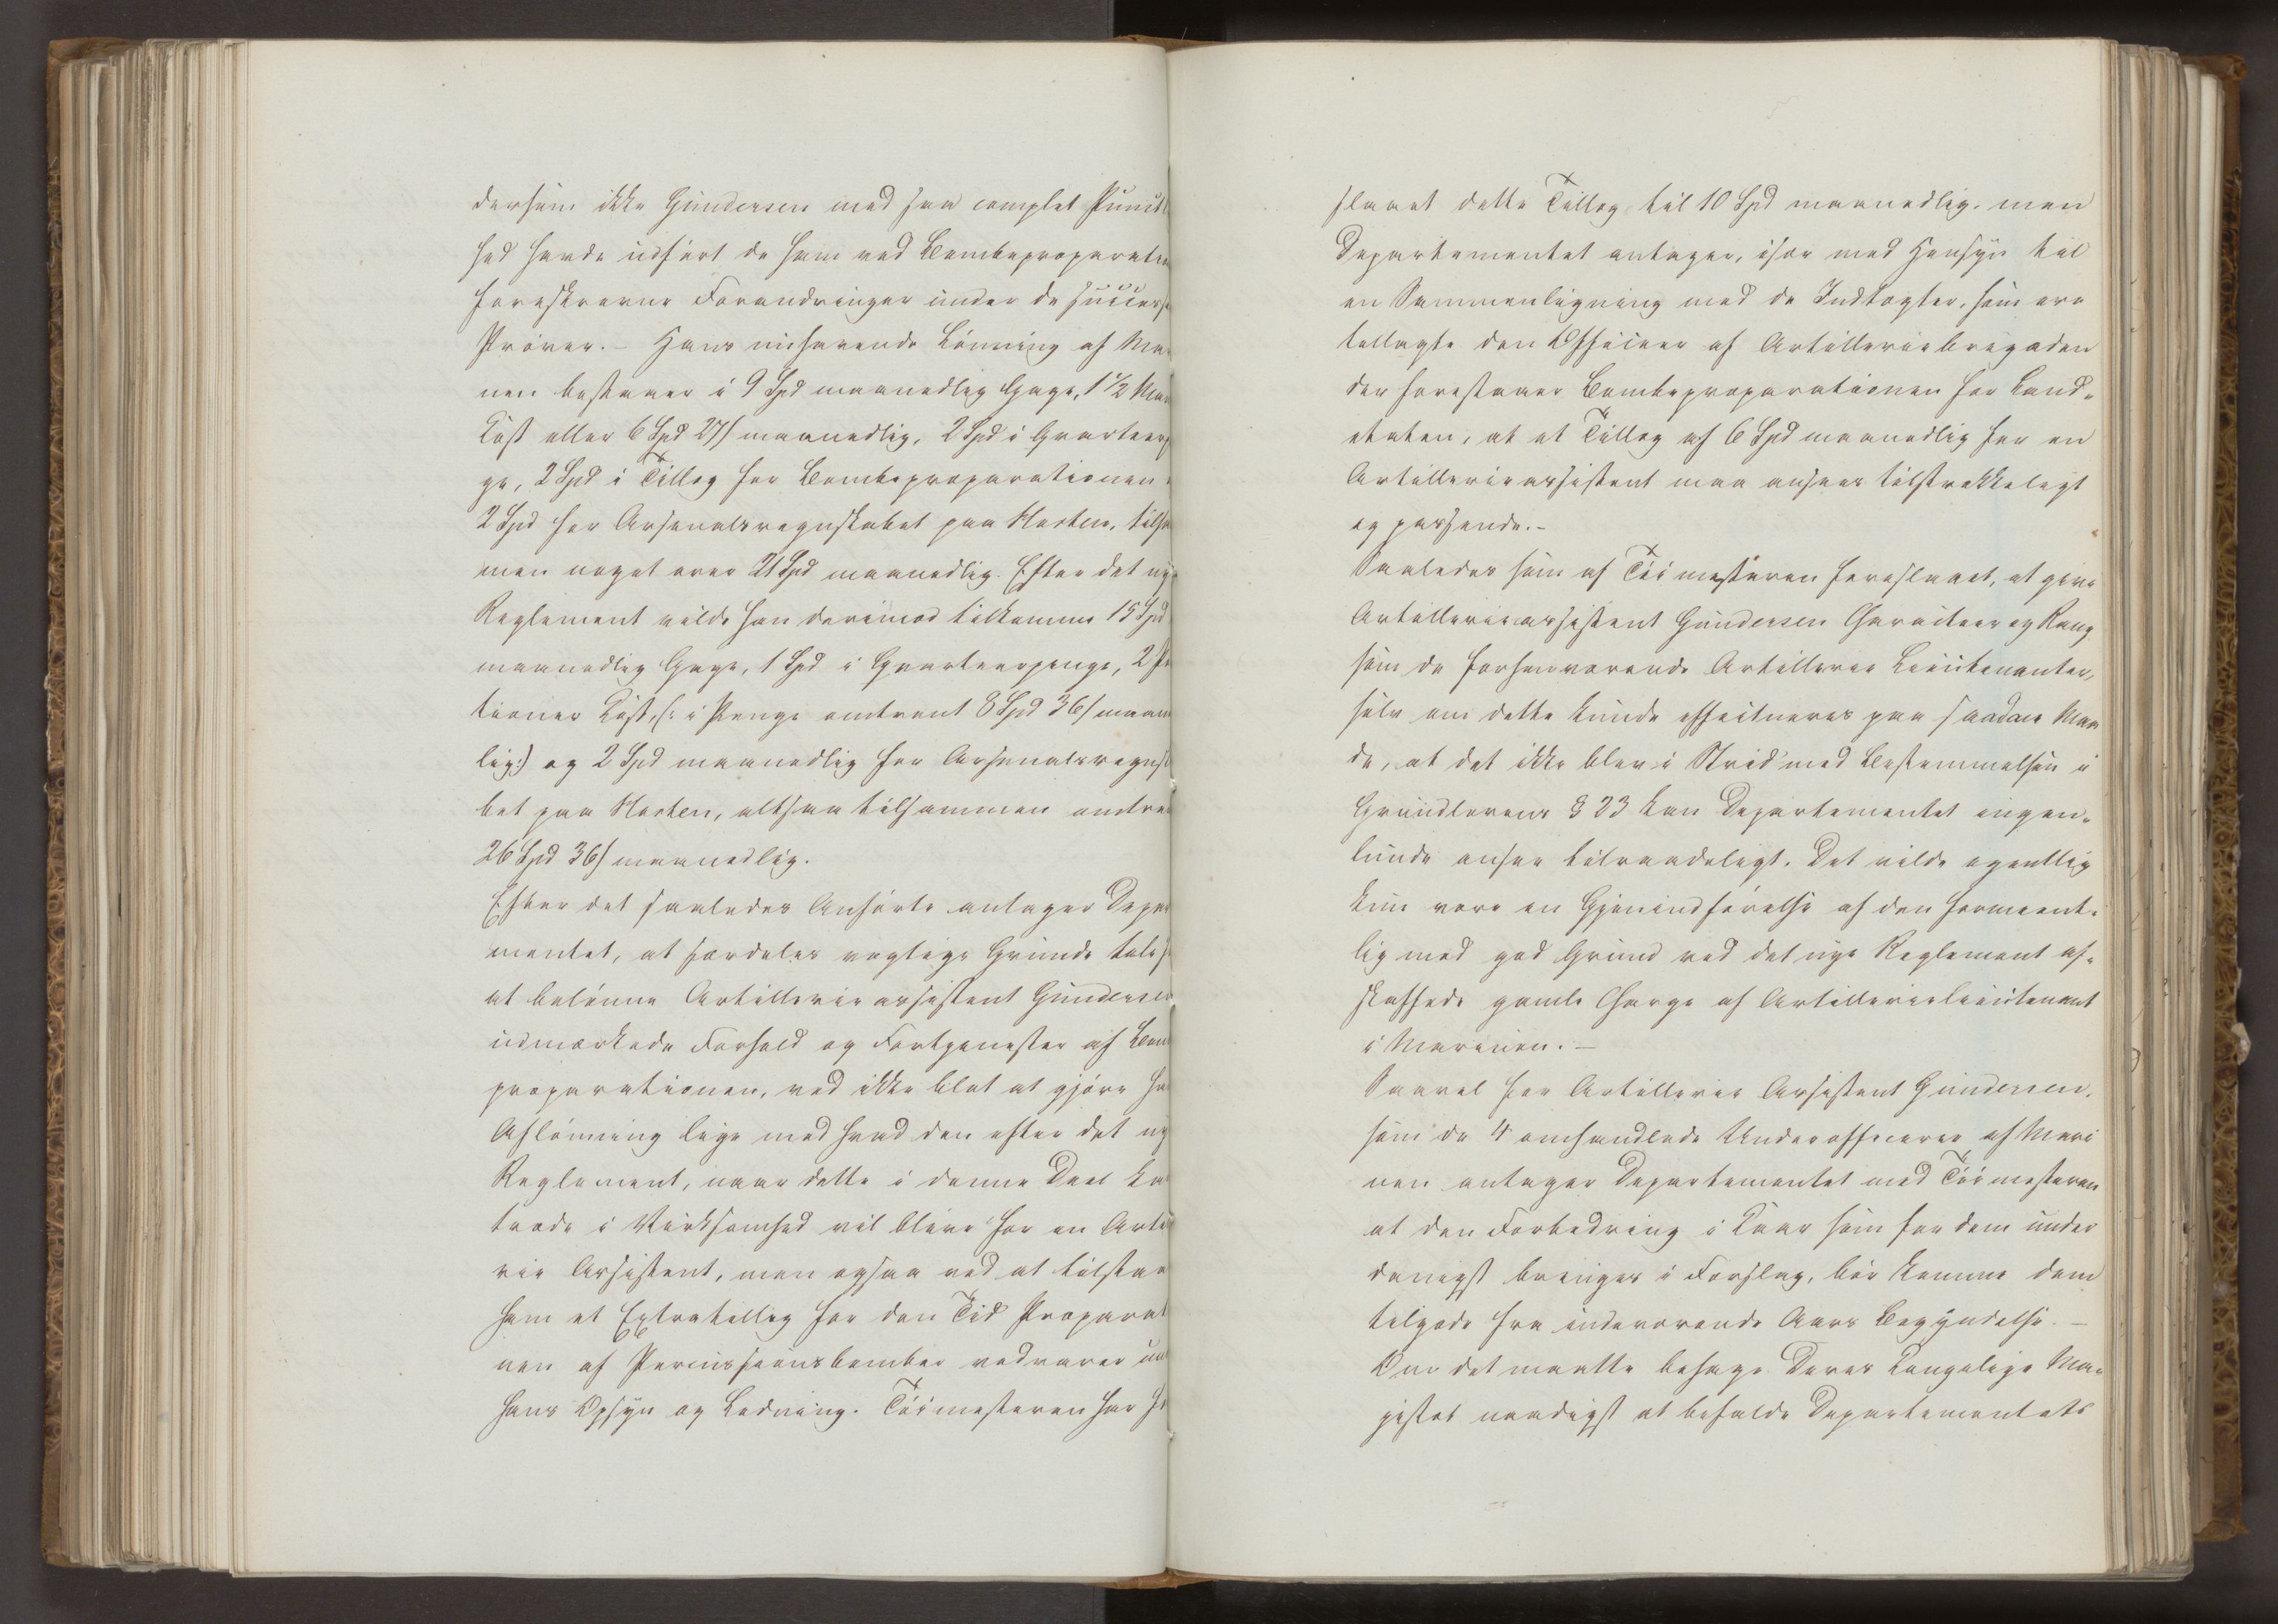 dersom ikke Gundersen med saa complet Punctl
hed havde udført de ham ved Bombepræparation
foreskrevne Forandringer under de succes
Prøver. – Hans nuhavende Lønning af Ma
nen bestaaer i 9 Spd maanedlig Gage, 1 1/2 Man
Kost eller 6 Spd 27 s maanedlig, 2 Spd i Qvarteer
ge, 2 Spd i Tillæg for Bombepræparationen
2 Spd for Arsenalsregnskabet paa Horten, tilsa
men noget over 21 Spd maanedlig. Efter det ny
Reglement vilde han derimod tilkomme 15 Spd
maanedlig Gage, 1 Spd i Qvarteerpenge, 2 Po
tioner Kost, (: i Penge omtrent 8 Spd 36 s maan
lig:) og 2 Spd maanedlig for Arsenalsregnsk
bet paa Horten, altsaa tilsammen omtren
26 Spd 36 s maanedlig.
Efter det saaledes Anførte antager Depar
mentet, at særdeles vægtige Grunde tale
at belønne Artillerieassistent Gundersen
udmærkede Forhold og Fortjenester af Bom
præparationen, ved ikke blot at gjøre ha
Aflønning lige med hvad den efter det ny
Reglement, naar dette i denne Deel ka
træde i Virksomhed vil blive for en Arti
rie Assistent, men ogsaa ved at tilstaa
ham et Extratillæg for den Tid Præparat
nen af Percussionsbomber vedvarer un
hans Opsyn og Ledning. Tøimesteren har
slaaet dette Tillæg til 10 Spd maanedlig. men
Departementet antager, især med Hensyn til
en Sammenligning med de Indtægter, som ere
tillagte den Officeer af Artilleriebrigaden
der forestaaer Bombepræparationen for Land-
etaten, at et Tillæg af 6 Spd maanedlig for en
Artillerieassistent maa ansees tilstrækkeligt
og passende. –
Saaledes som af Tøimesteren foreslaaet, at give
Artillerieassistent Gundersen Characteer og Rang
som de forhenværende Artillerie Lieutenanter,
selv om dette kunde effectueres paa saadan Maa
de, at det ikke blev i Strid med Bestemmelsen i
Grundlovens § 23 kan Departementet ingen-
lunde ansee tilraadeligt. Det vilde egentlig
kun være en Gjenindførelse af den formeent-
lig med god Grund ved det nye Reglement af-
skaffede gamle Charge af Artillerielieutenant
i Marinen. –
Saavel for Artillerie Assistent Gundersen,
som de 4 omhandlede Underofficerer af Mari
nen antager Departementet med Tøimesteren
at den Forbedring i Kaar som for dem under
danigst bringes i Forslag, bør komme dem
tilgode fra indeværende Aars Begyndelse. –
Om det maatte behage Deres Kongelige Ma-
jestæt naadigst at befalde Departementets